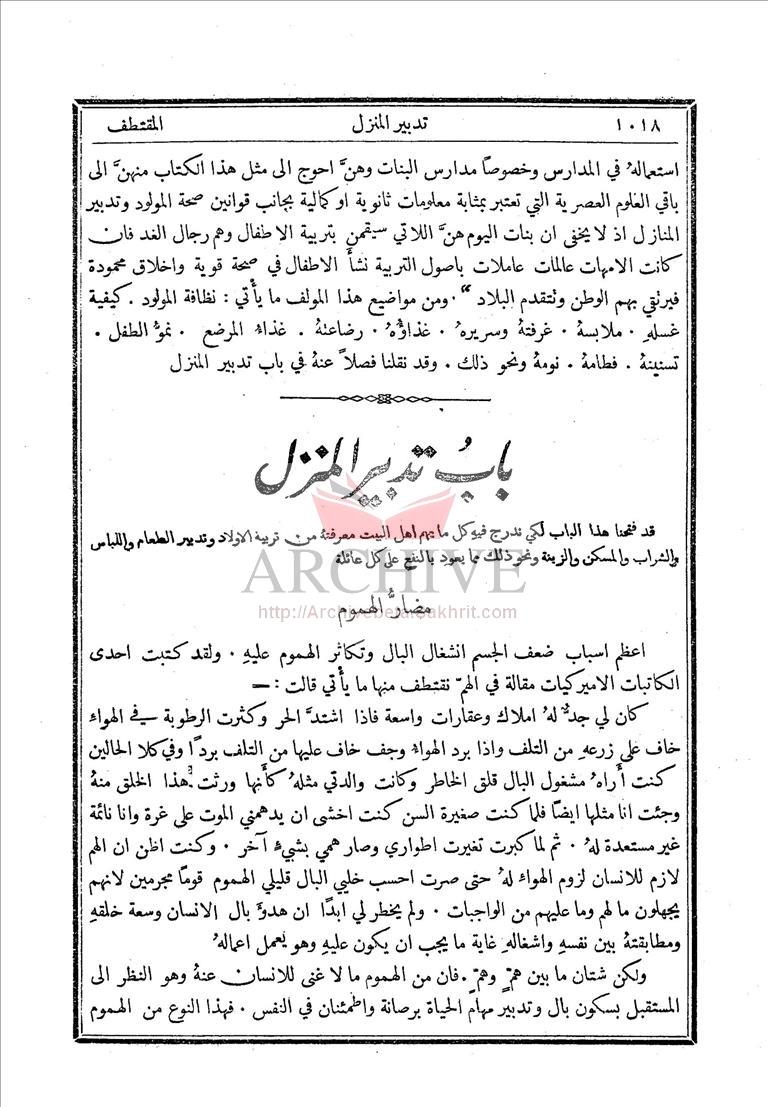 ١٠١٨ تدبير المنزل المقتطف
استعماله في المدارس وخصوصاً مدارس البنات وهنَّ احوج الى مثل هذا الكتاب منهنَّ الى
باقي العلوم العصرية التي تعتبر بمثابة معلومات ثانوية او كمالية بجانب قوانين صحة المولود وتدبير
المنازل اذ لا يخفى ان بنات اليوم هنَّ اللاتي سيقمن بتربية الاطفال وهم رجال الغد فان
كانت الامهات عالمات عاملات باصول التربية نشأَ الاطفال في صحة قوية واخلاق محمودة
فيرتقي بهم الوطن وتتقدم البلاد“ . ومن مواضيع هذا المولف ما يأتي : نظافة المولود . كيفية
غسلهِ . ملابسهُ . غرفتهُ وسريرهُ . غذاؤهُ . رضاعتهُ . غذاءُ المرضع . نموُّ الطفل .
تسنينهُ . فطامهُ . نومهُ ونحو ذلك . وقد نقلنا فصلاً عنهُ في باب تدبير المنزل
بابُ تدبير المنزل
قد فتحنا هذا الباب لكي ندرج فيهِ كل ما يهم اهل البيت معرفتهُ من تربية الاولاد وتدبير الطعام واللباس
والشراب والمسكن والزينة ونحو ذلك مما يعود بالنفع على كل عائلة
ARCHIVE
http://Archivebeta.Sakhrit.com
مضارُّ الهموم
اعظم اسباب ضعف الجسم انشغال البال وتكاثر الهموم عليهِ . ولقد كتبت احدى
الكاتبات الاميركيات مقالة في الهمّ نقتطف منها ما يأتي قالت : —
كان لي جدٌّ لهُ املاك وعقارات واسعة فاذا اشتدَّ الحر وكثرت الرطوبة في الهواء
خاف على زرعهِ من التلف واذا برد الهواءُ وجف خاف عليها من التلف برداً وفي كلا الحالين
كنت أراهُ مشغول البال قلق الخاطر وكانت والدتي مثلهُ كأنها ورثت هذا الخلق منهُ
وجئت انا مثلها ايضاً فلما كنت صغيرة السن كنت اخشى ان يدهمني الموت على غرة وانا نائمة
غير مستعدة لهُ . ثم لما كبرت تغيرت اطواري وصار همي بشيءٍ آخر . وكنت اظن ان الهم
لازم للانسان لزوم الهواء لهُ حتى صرت احسب خليي البال قليلي الهموم قوماً مجرمين لانهم
يجهلون ما لهم وما عليهم من الواجبات . ولم يخطر لي ابداً ان هدوَّ بال الانسان وسعة خلقهِ
ومطابقتهُ بين نفسهِ واشغالهِ غاية ما يجب ان يكون عليهِ وهو يعمل اعمالهُ
ولكن شتان ما بين همٍّ وهمٍّ . فان من الهموم ما لا غنى للانسان عنهُ وهو النظر الى
المستقبل بسكون بال وتدبير مهامّ الحياة برصانة واطمئنان في النفس . فهذا النوع من الهموم